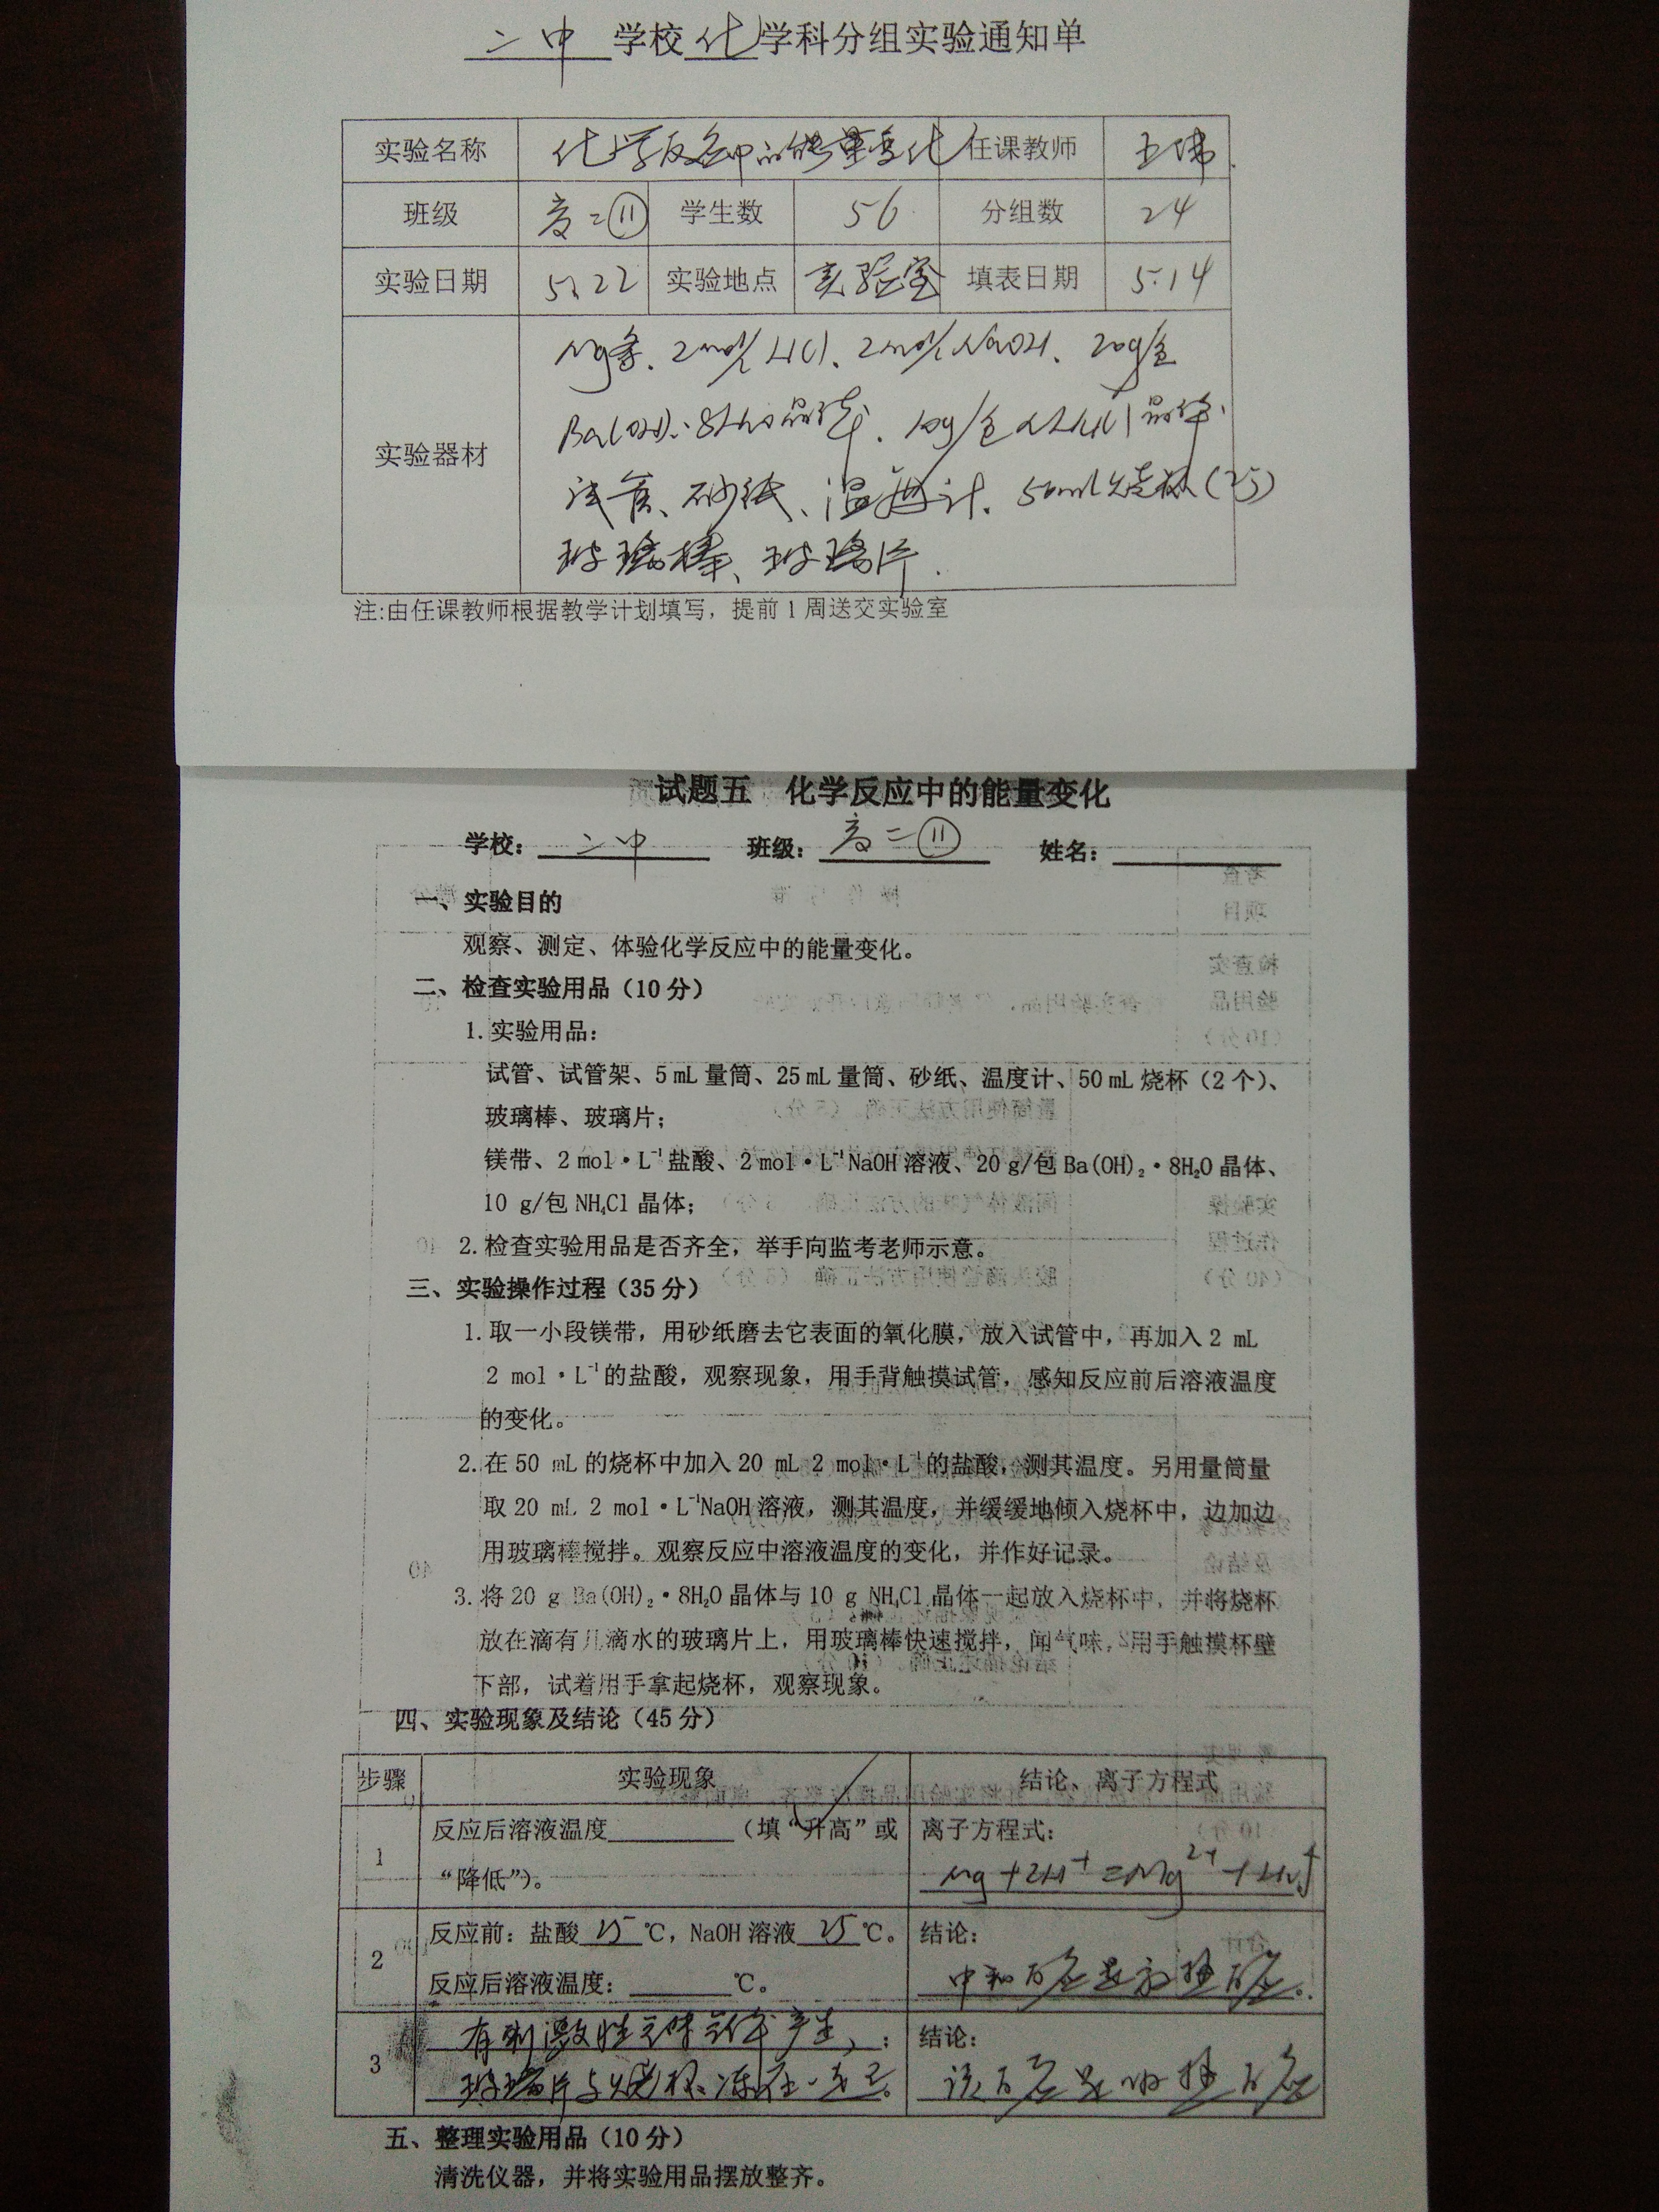 二中 学校 化 学科分组实验通知单
实验名称 化学反应中的能量变化 任课教师
班级 高二⑪ 学生数 56 分组数 24
实验日期 5.22 实验地点 实验室 填表日期 5.14
Mg条、2mol/L HCl、2mol/L NaOH、20g/包
实验器材 Ba(OH)₂·8H₂O晶体、10g/包 NH₄Cl晶体、
试管、砂纸、温度计、50ml烧杯(2个)
玻璃棒、玻璃片.
注:由任课教师根据教学计划填写，提前1周送交实验室
试题五 化学反应中的能量变化
学校: 二中 班级: 高二⑪ 姓名:
一、实验目的
观察、测定、体验化学反应中的能量变化。
二、检查实验用品（10分）
1.实验用品:
试管、试管架、5mL量筒、25mL量筒、砂纸、温度计、50mL烧杯（2个）、
玻璃棒、玻璃片;
镁带、2mol·L⁻¹盐酸、2mol·L⁻¹NaOH溶液、20g/包Ba(OH)₂·8H₂O晶体、
10 g/包NH₄Cl晶体;
2.检查实验用品是否齐全，举手向监考老师示意。
三、实验操作过程（35分）
1.取一小段镁带，用砂纸磨去它表面的氧化膜，放入试管中，再加入2 mL
2 mol·L⁻¹的盐酸，观察现象，用手背触摸试管，感知反应前后溶液温度
的变化。
2.在50 mL的烧杯中加入20 mL 2 mol·L⁻¹的盐酸，测其温度。另用量筒量
取20 mL 2 mol·L⁻¹NaOH溶液，测其温度，并缓缓地倾入烧杯中，边加边
用玻璃棒搅拌。观察反应中溶液温度的变化，并作好记录。
3.将20 g Ba(OH)₂·8H₂O晶体与10 g NH₄Cl晶体一起放入烧杯中，并将烧杯
放在滴有几滴水的玻璃片上，用玻璃棒快速搅拌，闻气味，用手触摸杯壁
下部，试着用手拿起烧杯，观察现象。
四、实验现象及结论（45分）
步骤 实验现象 结论、离子方程式
1 反应后溶液温度（填“升高”或 离子方程式:
“降低”）。 Mg+2H⁺=Mg²⁺+H₂↑
2 反应前: 盐酸 25 ℃，NaOH溶液 25 ℃。 结论:
反应后溶液温度: ℃。 中和反应是放热反应.
3 有刺激性气味气体产生、; 结论:
玻璃片与烧杯冻在一起了。 该反应是吸热反应
五、整理实验用品（10分）
清洗仪器，并将实验用品摆放整齐。